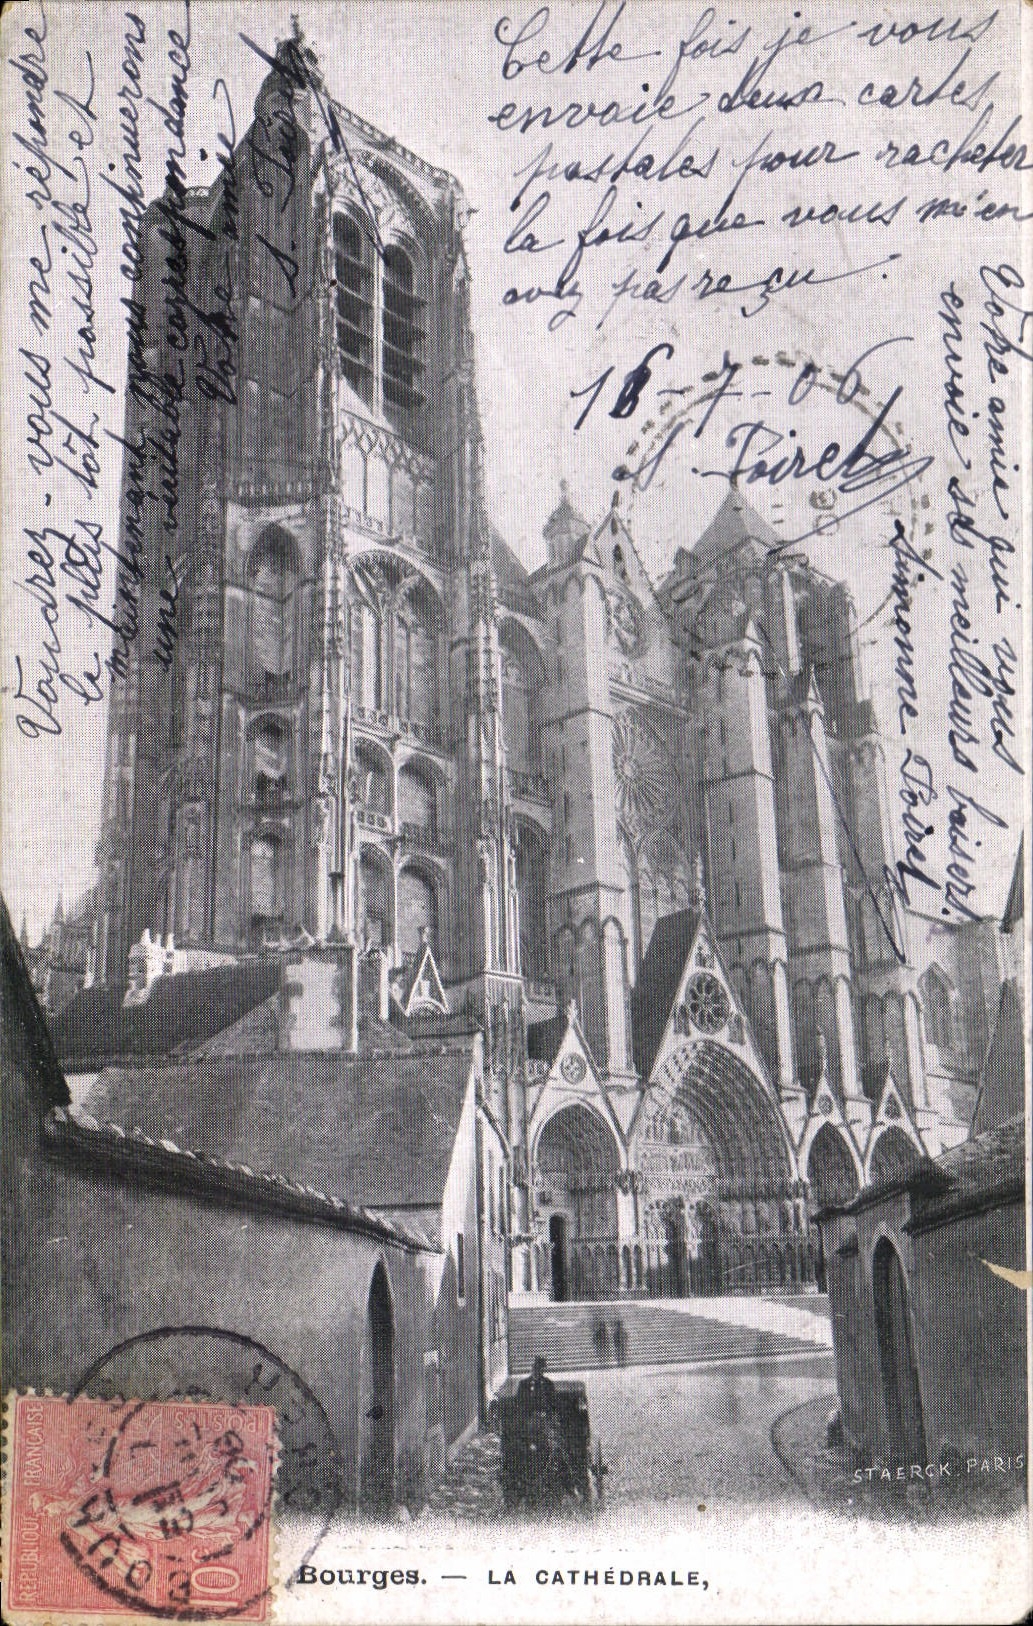 Cette fois je vous
envoie deux cartes
postales pour racheter
la fois que vous m'en
avez pas reçu.
16-7-06
S. Poirel
Votre amie qui vous
envoie ses meilleurs baisers.
Simonne Poirel
Voudrez-vous me répondre
le plus tôt possible et
maintenant nous continuerons
une véritable correspondance
Votre amie
S. Poirel
STAERCK PARIS
RÉPUBLIQUE FRANÇAISE
POSTES
10
BOURGES
CHER
Bourges. — LA CATHÉDRALE,